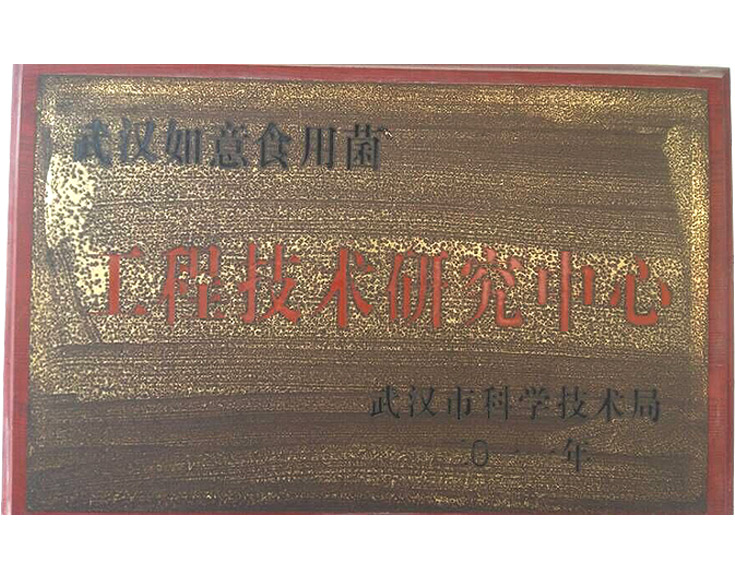 武汉如意食用菌
工程技术研究中心
武汉市科学技术局
二〇一一年